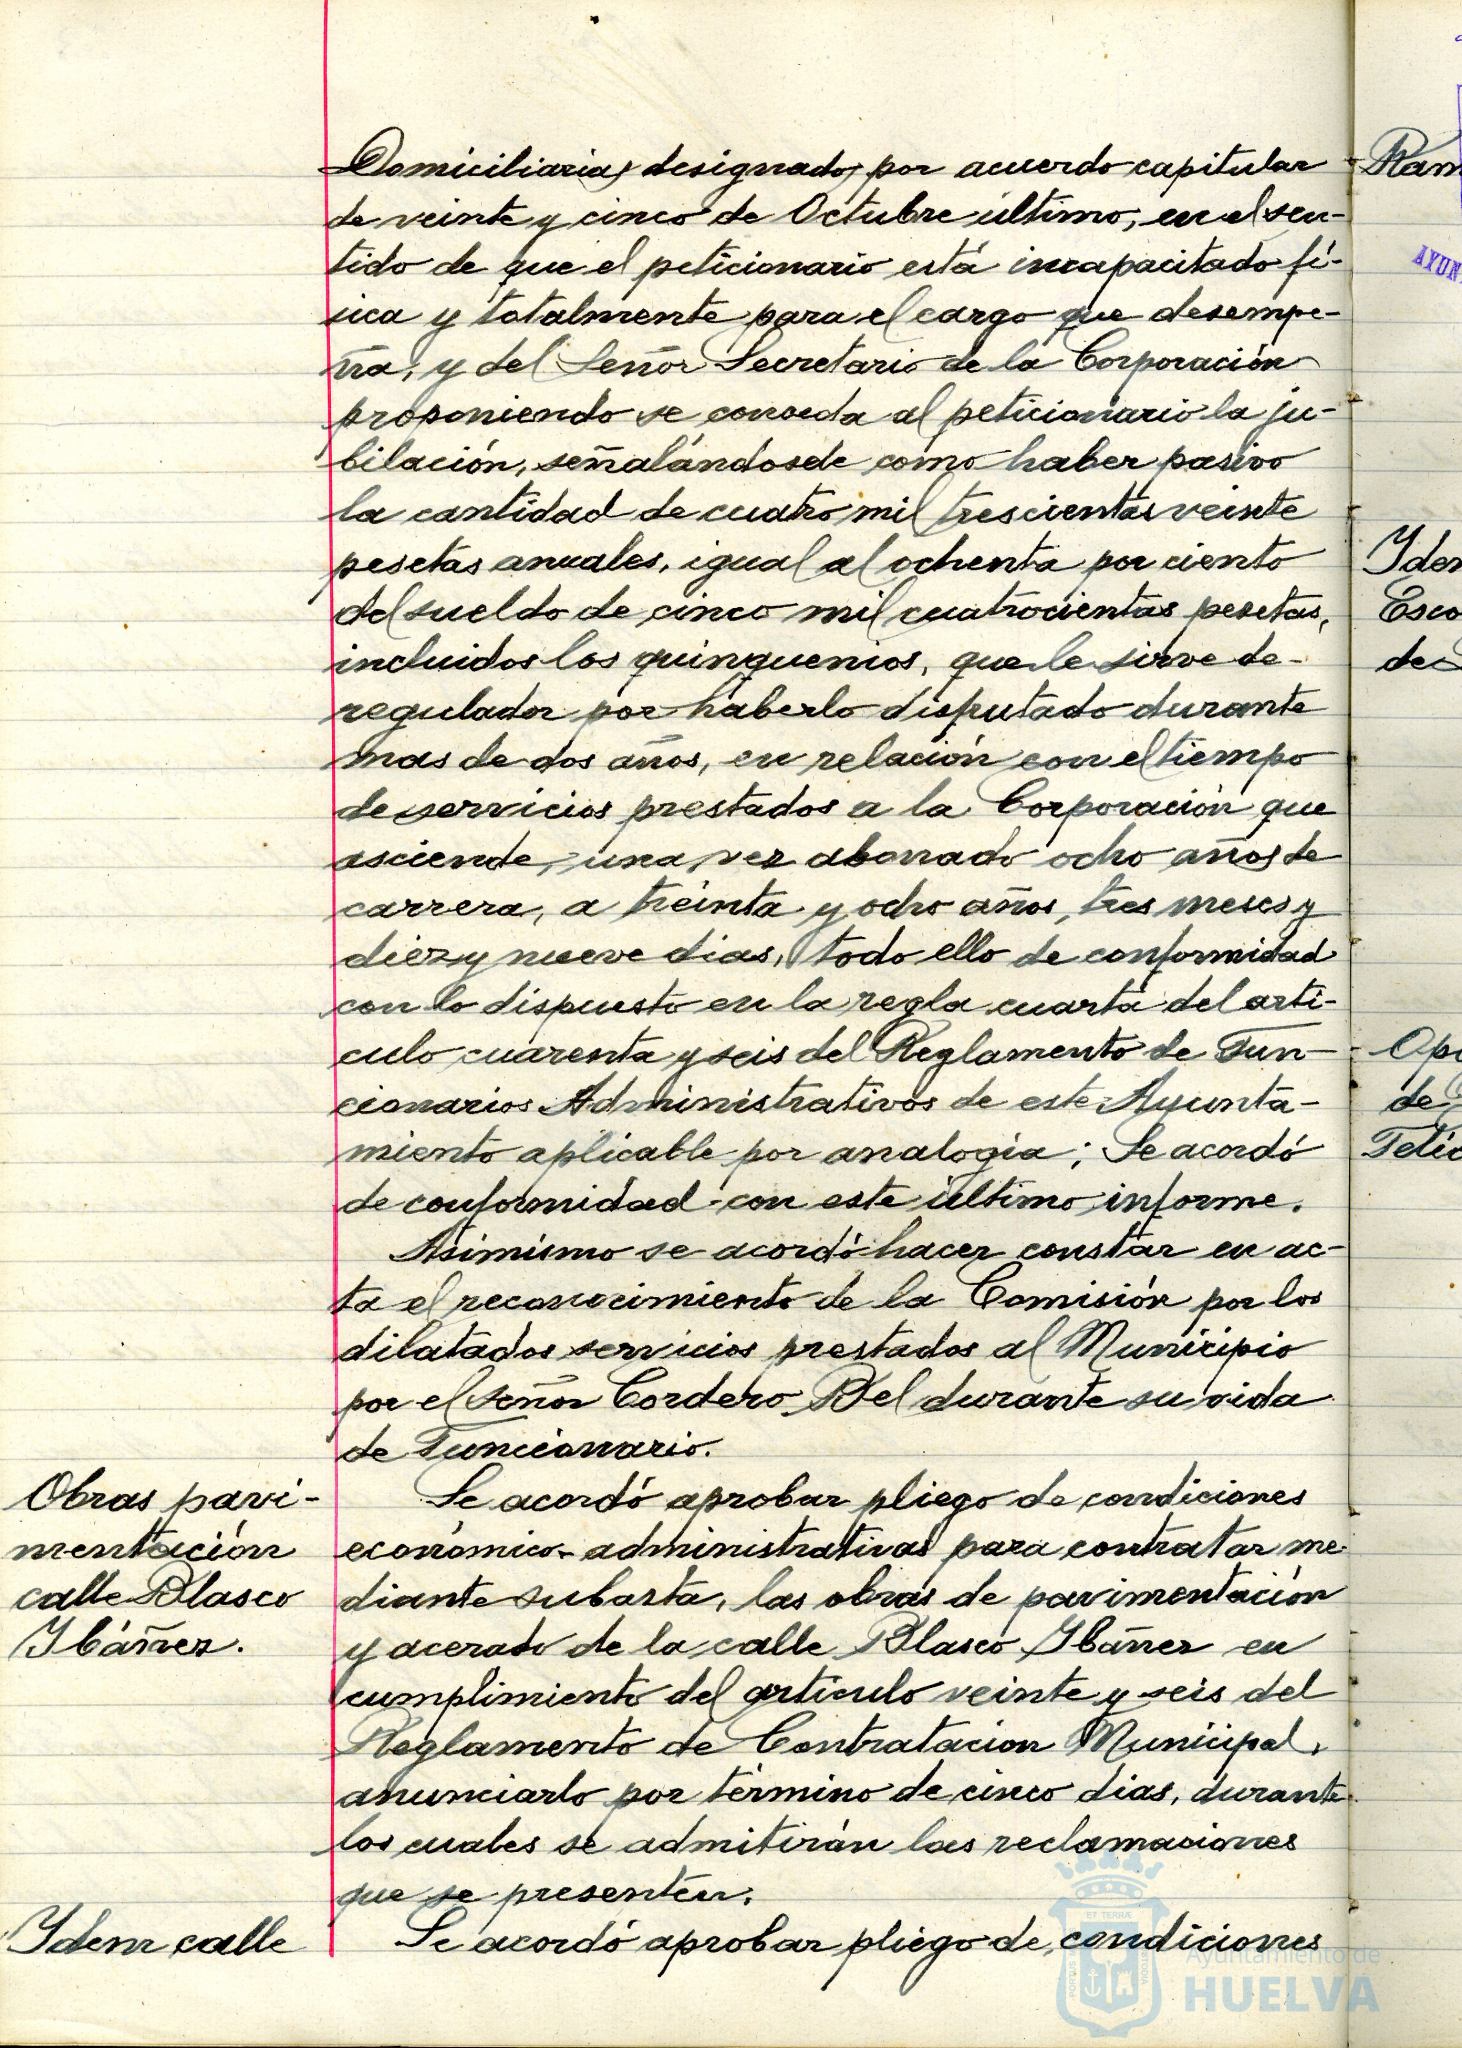 Domiciliaria, designado, por acuerdo capitular
de veinte y cinco de Octubre último, en el sen-
tido de que el peticionario está incapacitado fí-
sica y totalmente para el cargo que desempe-
ña, y del Señor Secretario de la Corporación
proponiendo se conceda al peticionario la ju-
bilación, señalándosele como haber pasivo
la cantidad de cuatro mil trescientas veinte
pesetas anuales, igual al ochenta por ciento
del sueldo de cinco mil cuatrocientas pesetas,
incluidos los quinquenios, que le sirve de
regulador por haberlo disfrutado durante
mas de dos años, en relación con el tiempo
de servicios prestados a la Corporación que
asciende, una vez abonado ocho años de
carrera, a treinta y ocho años, tres meses y
diez y nueve dias, todo ello de conformidad
con lo dispuesto en la regla cuarta del arti-
culo cuarenta y seis del Reglamento de Fun-
cionarios Administrativos de este Ayunta-
miento aplicable por analogia; Se acordó
de conformidad con este último informe.
Asimismo se acordó hacer constar en ac-
ta el reconocimiento de la Comisión por los
dilatados servicios prestados al Municipio
por el Señor Cordero Bel durante su vida
de Funcionario.
Obras pavi-
mentación
calle Blasco
Ibáñez.
Se acordó aprobar pliego de condiciones
económico-administrativas para contratar me-
diante subasta, las obras de pavimentación
y acerado de la calle Blasco Ibáñez en
cumplimiento del articulo veinte y seis del
Reglamento de Contratacion Municipal,
anunciarlo por término de cinco dias, durante
los cuales se admitirán las reclamaciones
que se presenten.
Idem calle
Se acordó aprobar pliego de condiciones
Ayuntamiento de
HUELVA